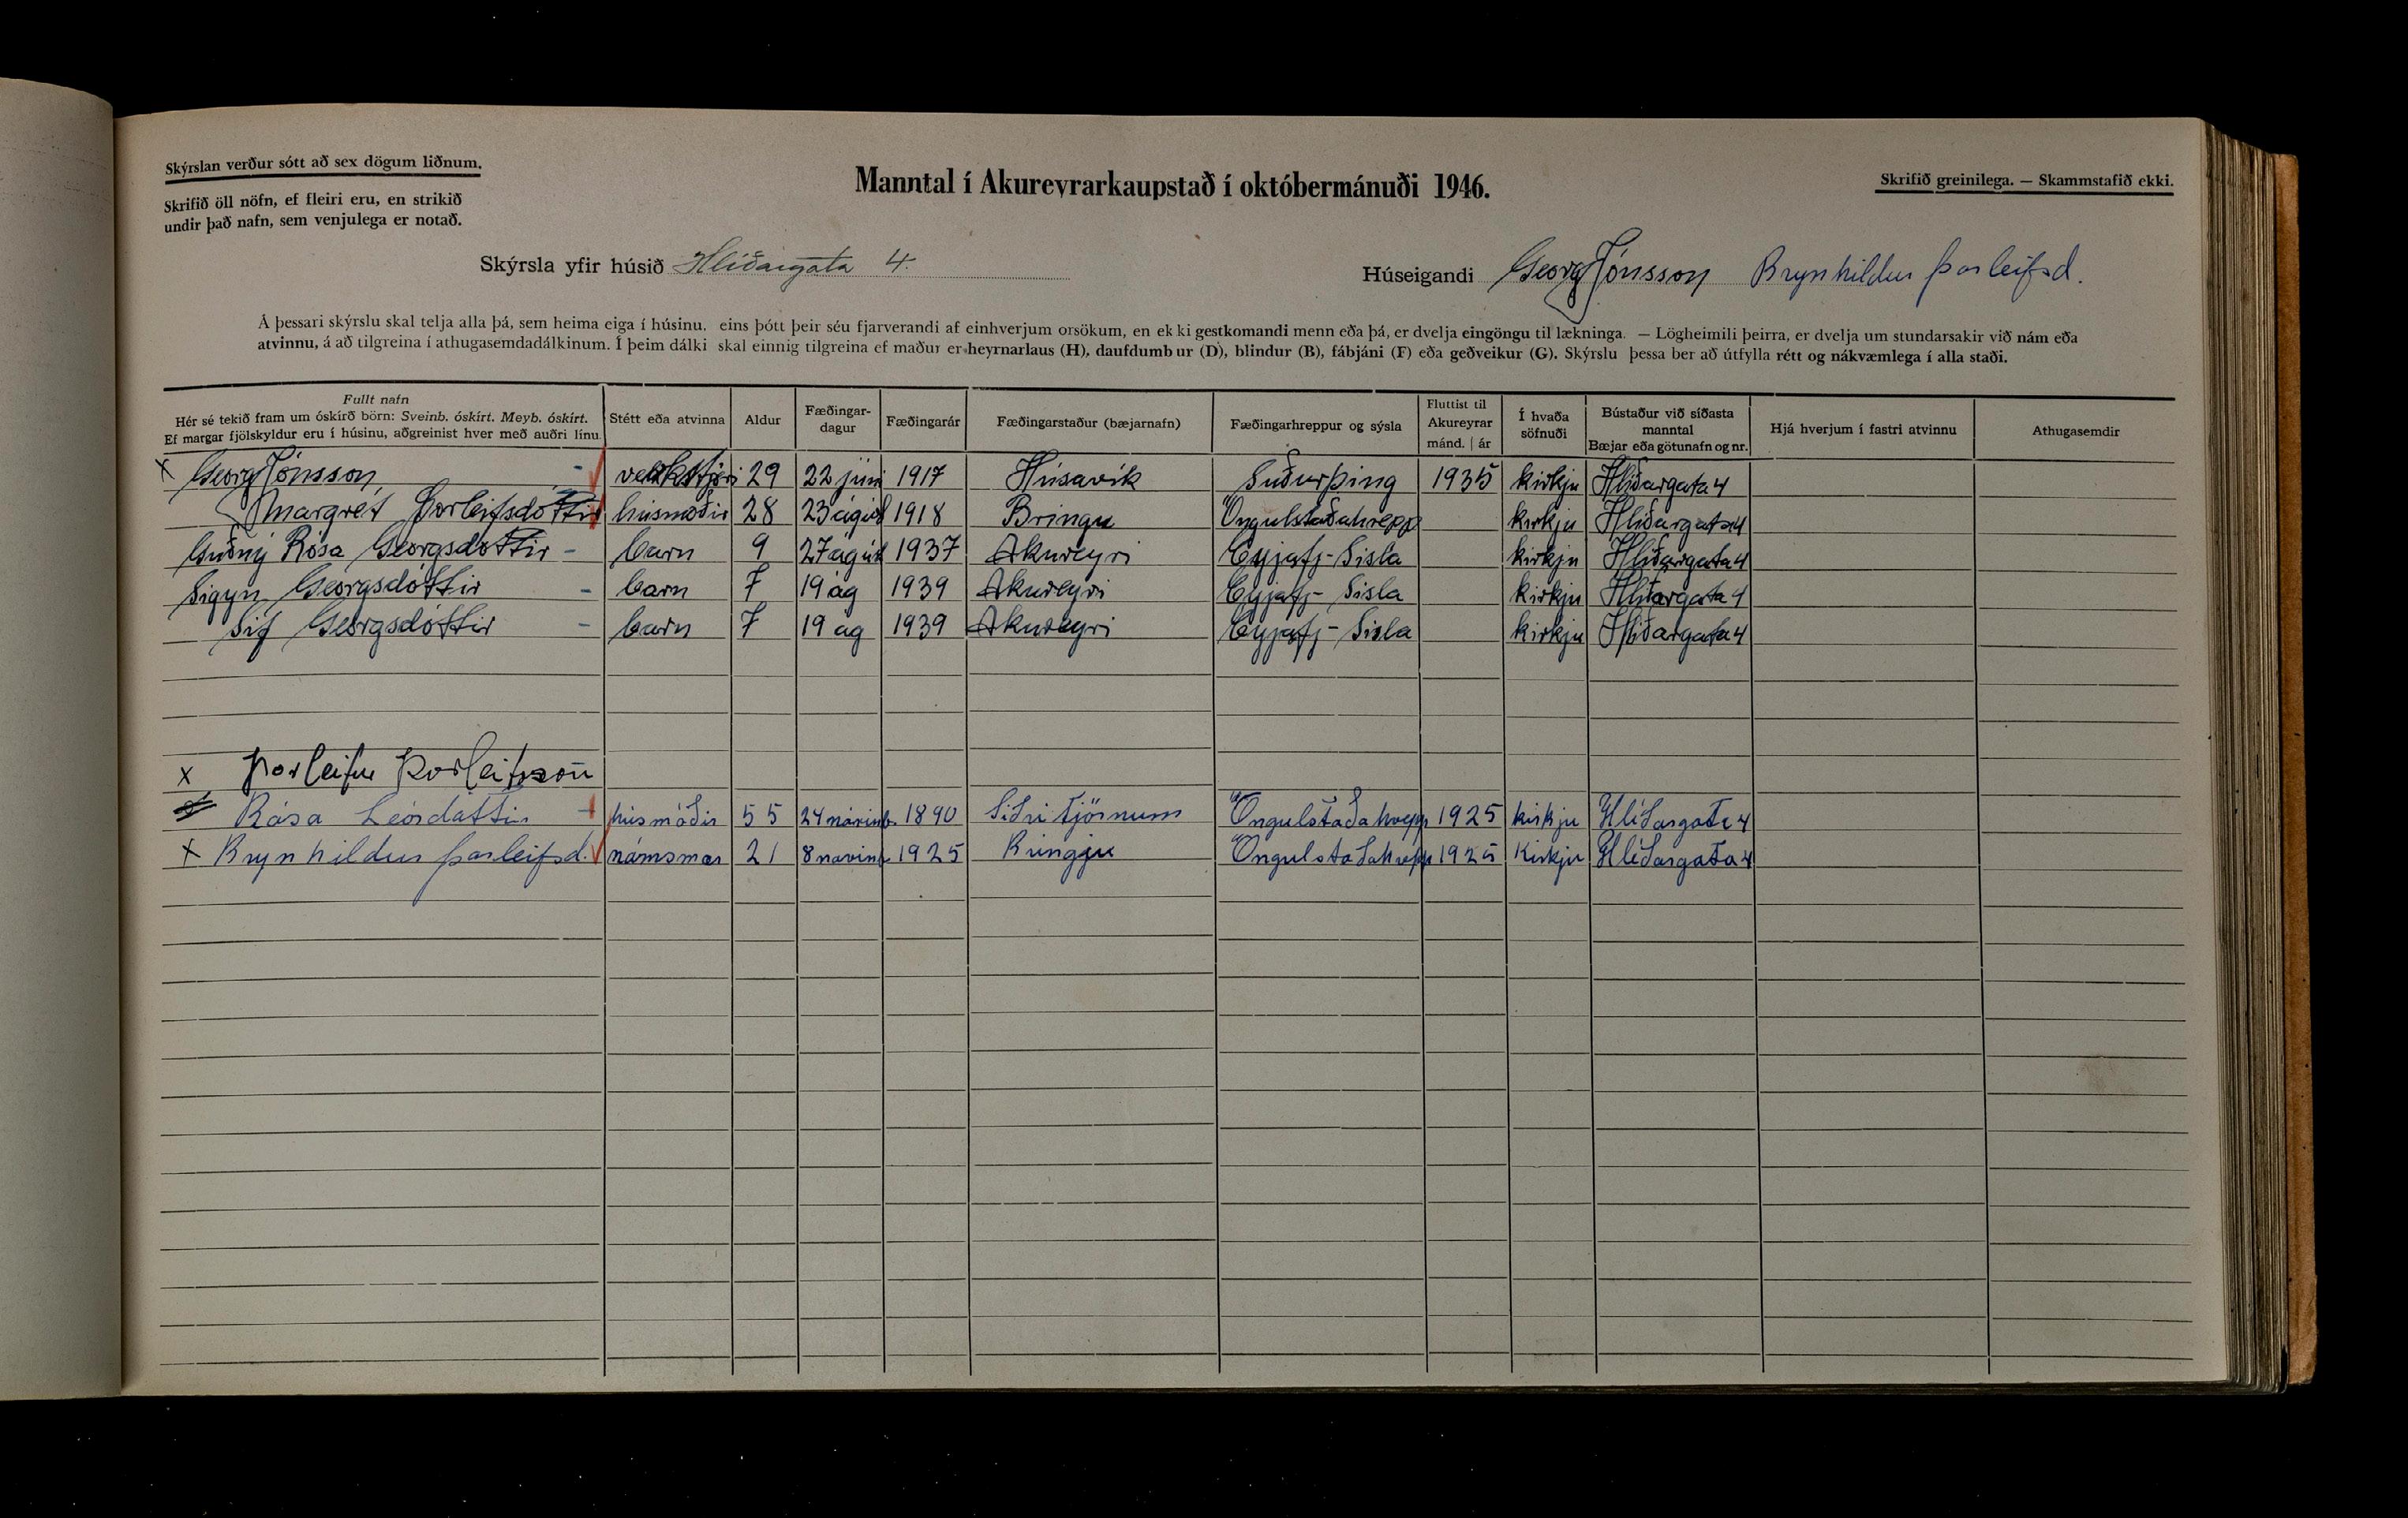 Skýrslan verður sótt að sex dögum liðnum.
Skrifið öll nöfn, ef fleiri eru, en strikið
undir það nafn, sem venjulega er notað.
Manntal í Akureyrarkaupstað í októbermánuði 1946.
Skrifið greinilega. — Skammstafið ekki.
Skýrsla yfir húsið Hlíðargata 4.
Húseigandi Georg Jónsson Brynhildur Þorleifsd.
Á þessari skýrslu skal telja alla þá, sem heima eiga í húsinu, eins þótt þeir séu fjarverandi af einhverjum orsökum, en ekki gestkomandi menn eða þá, er dvelja eingöngu til lækninga. — Lögheimili þeirra, er dvelja um stundarsakir við nám eða
atvinnu, á að tilgreina í athugasemdadálkinum. Í þeim dálki skal einnig tilgreina ef maður er heyrnarlaus (H), daufdumbur (D), blindur (B), fábjáni (F) eða geðveikur (G). Skýrslu þessa ber að útfylla rétt og nákvæmlega í alla staði.
Fullt nafn
Hér sé tekið fram um óskírð börn: Sveinb. óskírt. Meyb. óskírt.
Ef margar fjölskyldur eru í húsinu, aðgreinist hver með auðri línu.
Stétt eða atvinna
Aldur
Fæðingar-
dagur
Fæðingarár
Fæðingarstaður (bæjarnafn)
Fæðingarhreppur og sýsla
Fluttist til
Akureyrar
mánd. | ár
Í hvaða
söfnuði
Bústaður við síðasta
manntal
Bæjar eða götunafn og nr.
Hjá hverjum í fastri atvinnu
Athugasemdir
x Georg Jónsson - verkstjóri 29 22 júní 1917 Húsavík Suðurþing 1935 kirkju Hlíðargata 4
Margrét Þorleifsdóttir húsmóðir 28 23 ágúst 1918 Bringu Öngulstaðahrepp kirkju Hlíðargata 4
Guðný Rósa Georgsdóttir - barn 9 27 ágúst 1937 Akureyri Eyjafj-Sísla kirkju Hlíðargata 4
Sigyn Georgsdóttir - barn 7 19 ág 1939 Akureyri Eyjafj-Sisla kirkju Hlíðargata 4
Sif Georgsdóttir - barn 7 19 ag 1939 Akureyri Eyjafj-Sisla kirkju Hlíðargata 4
x Þorleifur Þorleifsson
Rósa húsmóðir 55 24 1890 Öngulstaðahrepp 1925 kirkju Hlíðargata 4
x Brynhildur Þorleifsd. námsmær 21 8 1925 Öngulstaðahrepp 1925 Kirkju Hlíðargata 4